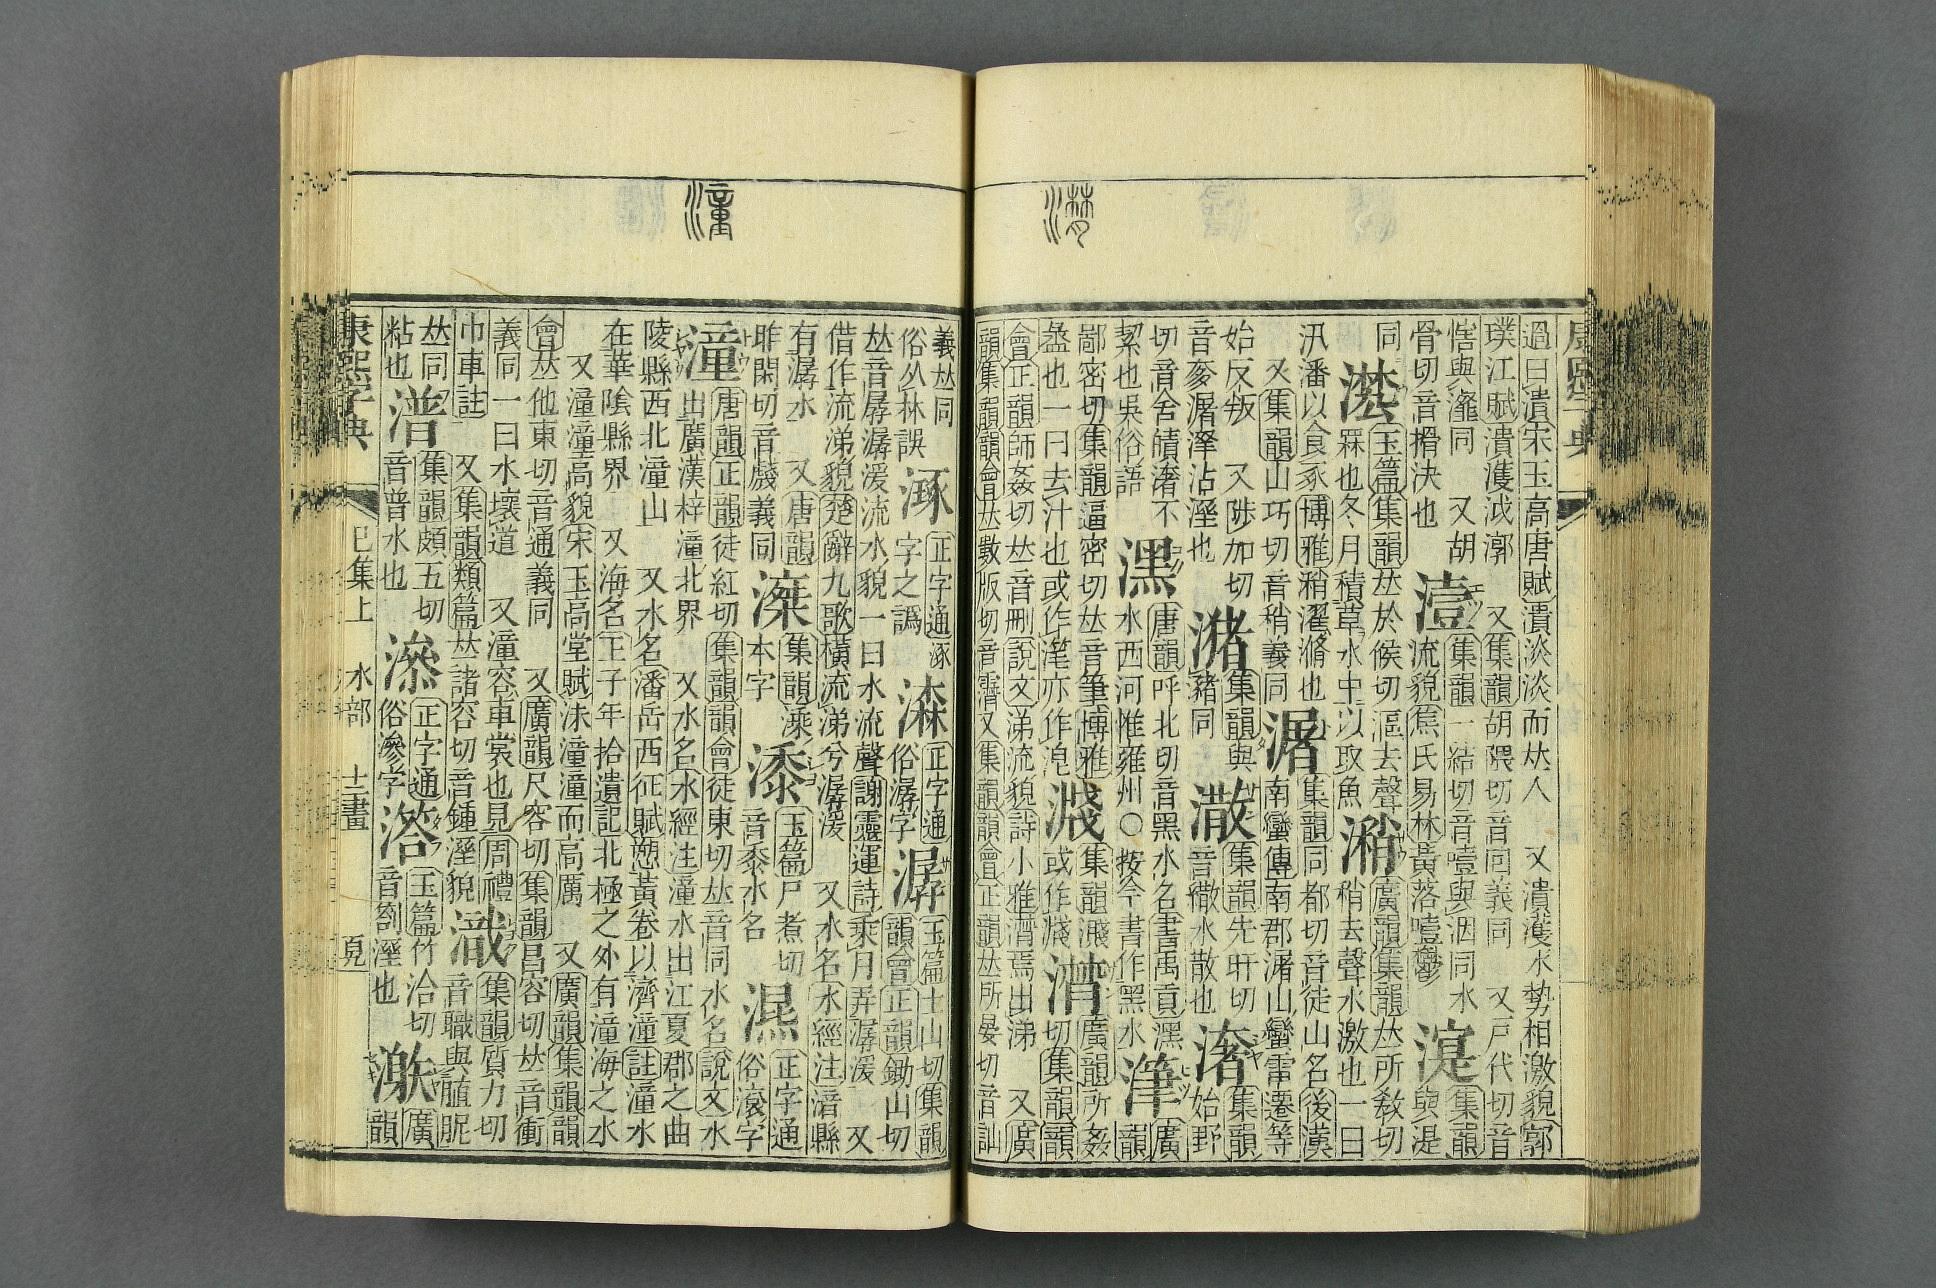 潸
過曰潰宋玉高唐賦潰淡淡而𠀤人 又潰濩水勢相激貌郭
璞江賦潰濩泧漷 又集韻胡隈切音回義同 又戸代切音
與瀣同 又胡骨切音搰決也 潱 集韻一結切音噎與洇同水流貌焦氏易林黃落噎鬱 湜 集韻與湜
同 玉篇集韻𠀤於候切漚去聲槑也冬月積草水中以取魚 潲 廣韻集韻𠀤所敎切稍去聲水激也一曰
汛潘以食豕博雅稍濯滫也 又集韻山巧切音稍義同 潳 集韻同都切音徒山名後漢南蠻傳南郡潳山蠻雷遷等
始反叛 又陟加切音奓潳沾溼也 潴 集韻與瀦同 潵 集韻先旰切音繖水散也 㵔 集韻始野
切音舍皟㵔不絜也吳俗語 潶 唐韻呼北切音黑水名書禹貢潶水西河惟雍州○按今書作黑水 潷 廣韻
鄙密切集韻逼密切𠀤音筆博雅盝也一曰去汁也或作滗亦作浘 集韻濺或作 潸 廣韻所姦切集韻韻
會正韻師姦切𠀤音刪說文涕流貌詩小雅潸焉出涕 又廣
韻集韻韻會𠀤數版切音潸又集韻韻會正韻𠀤所晏切音訕
潼
義𠀤同俗从林誤 涿 正字通涿字之譌 潹 正字通俗潺字 潺 玉篇士山切集韻韻會正韻鋤山切
𠀤音孱潺湲流水貌一曰水流聲謝靈運詩乘月弄潺湲 又
借作流涕貌楚辭九歌橫流涕兮潺湲 又水名水經注涪縣
有潺水 又唐韻昨閑切音戲義同 集韻漅本字 玉篇尸煮切音黍水名 正字通俗滾字
潼 唐韻正韻徒紅切集韻韻會徒東切𠀤音同水名說文水
出廣漢梓潼北界 又水名水經注潼水出江夏郡之曲
陵縣西北潼山 又水名潘岳西征賦愬黃巷以濟潼註潼水
在華陰縣界 又海名王子年拾遺記北極之外有潼海之水
又潼潼高貌宋玉高堂賦沫潼潼而高厲 又廣韻集韻韻
會𠀤他東切音通義同 又廣韻尺容切集韻昌容切𠀤音衝
義同一曰水壞道 又潼容車裳也見周禮
巾車註 又集韻類篇𠀤諸容切音鍾溼貌 集韻質力切音職與膱昵
𠀤同粘也 潽 集韻頗五切音普水也 正字通俗滲字 㵀 玉篇竹洽切音劄溼也 潡 廣韻
康熙字典 巳集上 水部 十二畫